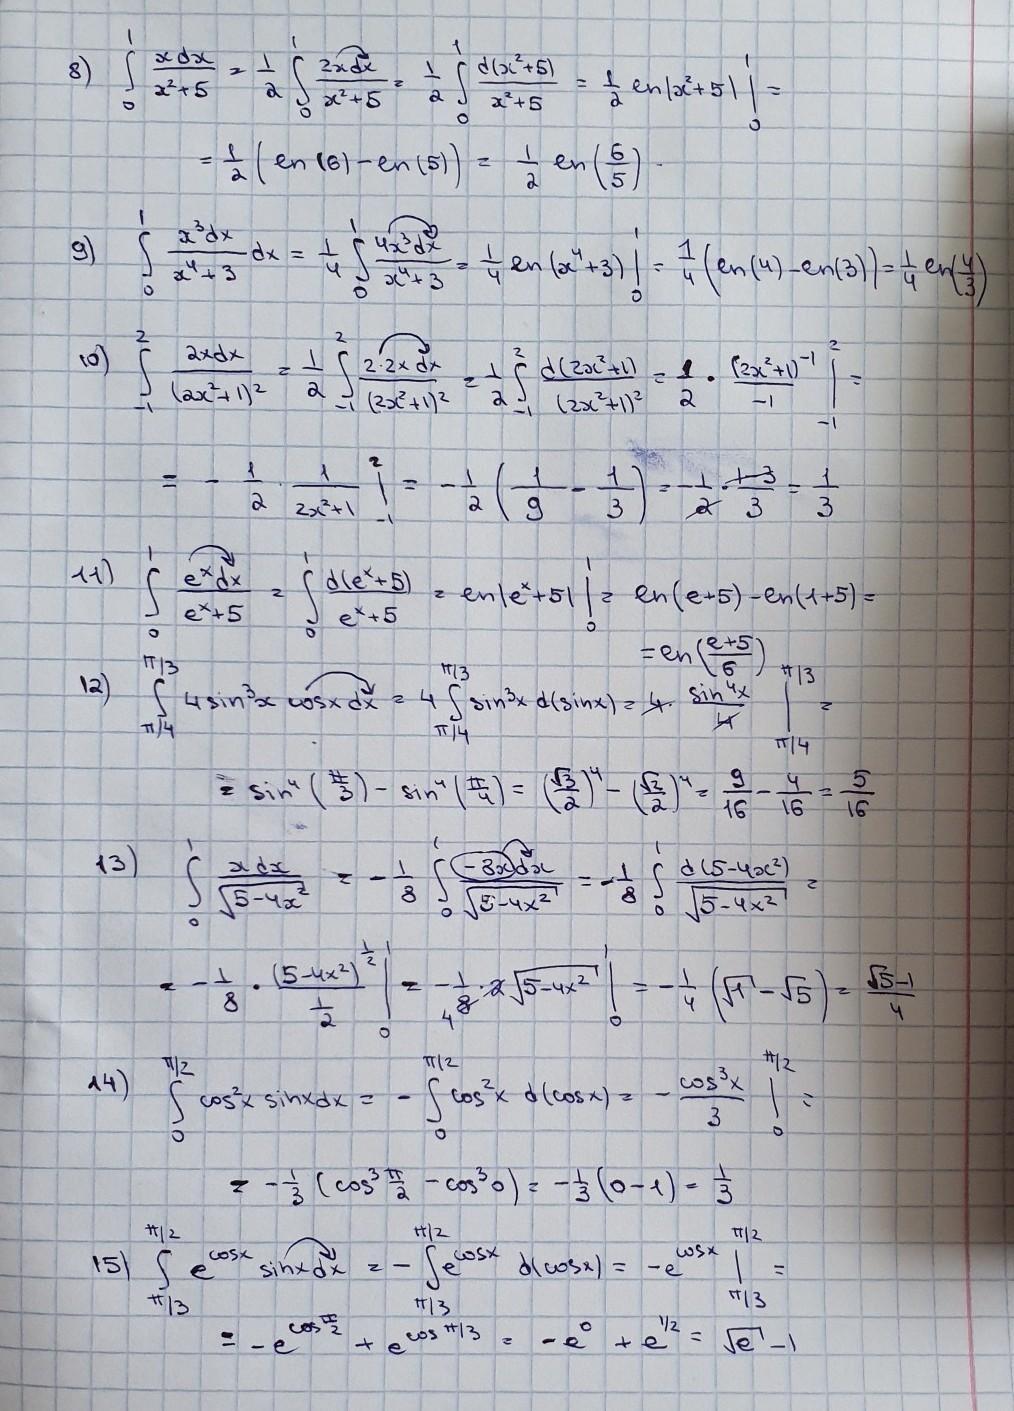 8) ∫₀¹ xdx/(x²+5) = 1/2 ∫₀¹ 2xdx/(x²+5) = 1/2 ∫₀¹ d(x²+5)/(x²+5) = 1/2 ln|x²+5| |₀¹ =
= 1/2 (ln(6) - ln(5)) = 1/2 ln(6/5)
9) ∫₀¹ x³dx/(x⁴+3) dx = 1/4 ∫₀¹ 4x³dx/(x⁴+3) = 1/4 ln(x⁴+3) |₀¹ = 1/4 (ln(4) - ln(3)) = 1/4 ln(4/3)
10) ∫₋₁² 2xdx/(2x²+1)² = 1/2 ∫₋₁² 2·2xdx/(2x²+1)² = 1/2 ∫₋₁² d(2x²+1)/(2x²+1)² = 1/2 · (2x²+1)⁻¹/-1 |₋₁² =
= - 1/2 · 1/(2x²+1) |₋₁² = - 1/2 (1/9 - 1/3) = - 1/2 · (1-3)/3 = 1/3
11) ∫₀¹ eˣdx/(eˣ+5) = ∫₀¹ d(eˣ+5)/(eˣ+5) = ln|eˣ+5| |₀¹ = ln(e+5) - ln(1+5) =
= ln((e+5)/6)
12) ∫_{π/4}^{π/3} 4sin³x cosxdx = 4 ∫_{π/4}^{π/3} sin³x d(sinx) = 4 · sin⁴x/4 |_{π/4}^{π/3} =
= sin⁴(π/3) - sin⁴(π/4) = (√3/2)⁴ - (√2/2)⁴ = 9/16 - 4/16 = 5/16
13) ∫₀¹ xdx/√(5-4x²) = - 1/8 ∫₀¹ -8xdx/√(5-4x²) = - 1/8 ∫₀¹ d(5-4x²)/√(5-4x²) =
= - 1/8 · (5-4x²)^{1/2}/(1/2) |₀¹ = - 1/8 · 2√(5-4x²) |₀¹ = - 1/4 (√1 - √5) = (√5-1)/4
14) ∫₀^{π/2} cos²x sinxdx = - ∫₀^{π/2} cos²x d(cosx) = - cos³x/3 |₀^{π/2} =
= - 1/3 (cos³ π/2 - cos³0) = - 1/3 (0-1) = 1/3
15) ∫_{π/3}^{π/2} e^{cosx} sinxdx = - ∫_{π/3}^{π/2} e^{cosx} d(cosx) = -e^{cosx} |_{π/3}^{π/2} =
= -e^{cos π/2} + e^{cos π/3} = -e⁰ + e^{1/2} = √e - 1